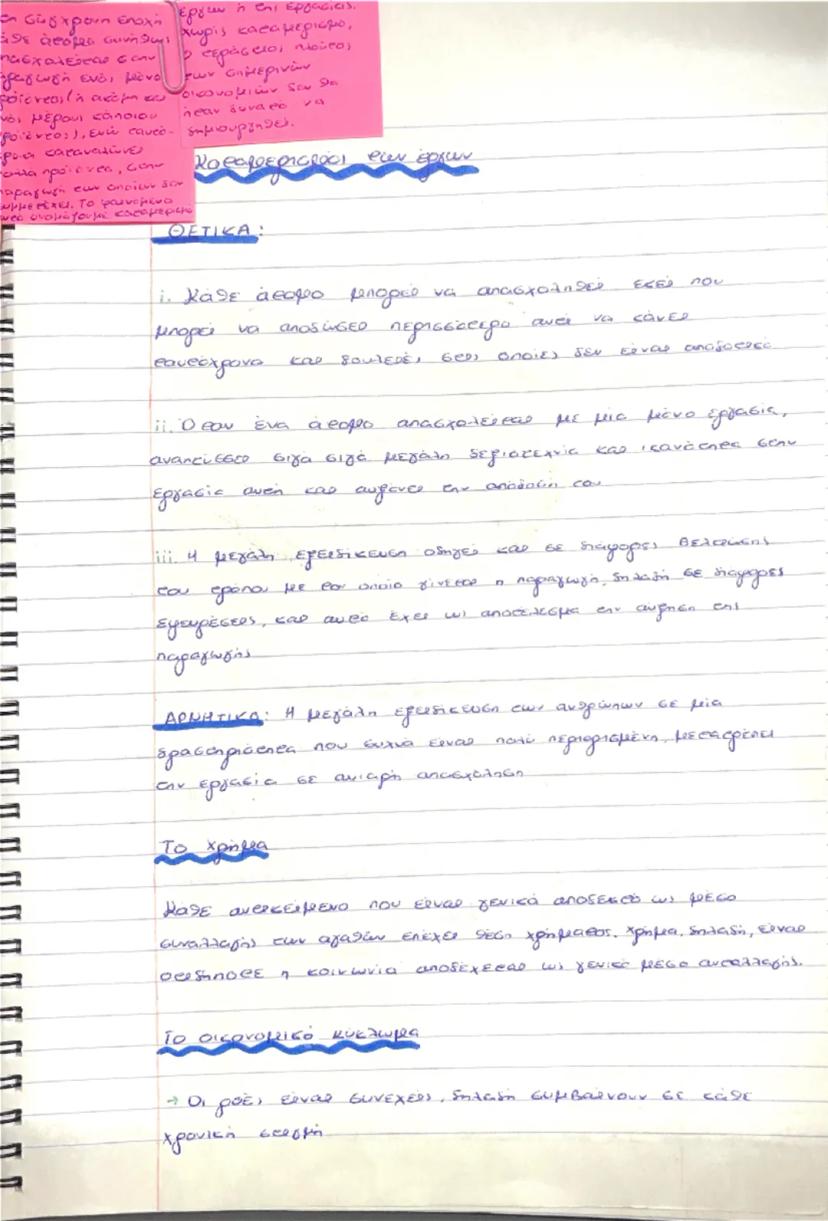 τη σύγχρονη εποχή
άθε άτομο συνήθως
πασχολείται στην
αραγωγή ενός μόνο
ροϊόντος (ή ακόμη και
νός μέρους κάποιου
ροϊόντος), ενώ ταυτό-
χρονα καταναλώνει
πολλά προϊόντα, στην
παραγωγή των οποίων δεν
συμμετέχει. Το φαινόμενο
αυτό ονομάζουμε καταμερισμό
έργων ή της εργασίας.
Χωρίς καταμερισμό,
ο τεράστιος πλούτος
των σημερινών
οικονομιών δεν θα
ήταν δυνατό να
δημιουργηθεί.
Καταμερισμός των έργων
ΘΕΤΙΚΑ:
i. Κάθε άτομο μπορεί να απασχοληθεί εκεί που
μπορεί να αποδώσει περισσότερο αντί να κάνει
ταυτόχρονα και δουλειές στις οποίες δεν είναι αποδοτικό
ii. Όταν ένα άτομο απασχολείται με μία μόνο εργασία,
αναπτύσσει σιγά σιγά μεγάλη δεξιοτεχνία και ικανότητα στην
εργασία αυτή και αυξάνει την απόδοσή του
iii. Η μεγάλη εξειδίκευση οδηγεί και σε διάφορες βελτιώσεις
του τρόπου με τον οποίο γίνεται η παραγωγή, δηλαδή σε διάφορες
εφευρέσεις, και αυτό έχει ως αποτέλεσμα την αύξηση της
παραγωγής
ΑΡΝΗΤΙΚΑ: Η μεγάλη εξειδίκευση των ανθρώπων σε μία
δραστηριότητα που συχνά είναι πολύ περιορισμένη, μετατρέπει
την εργασία σε ανιαρή απασχόληση
Το χρήμα
Κάθε αντικείμενο που είναι γενικά αποδεκτό ως μέσο
συναλλαγής των αγαθών επέχει θέση χρήματος. Χρήμα, δηλαδή, είναι
οτιδήποτε η κοινωνία αποδέχεται ως γενικό μέσο ανταλλαγής.
Το οικονομικό κύκλωμα
→ Οι ροές είναι συνεχείς, δηλαδή συμβαίνουν σε κάθε
χρονική στιγμή